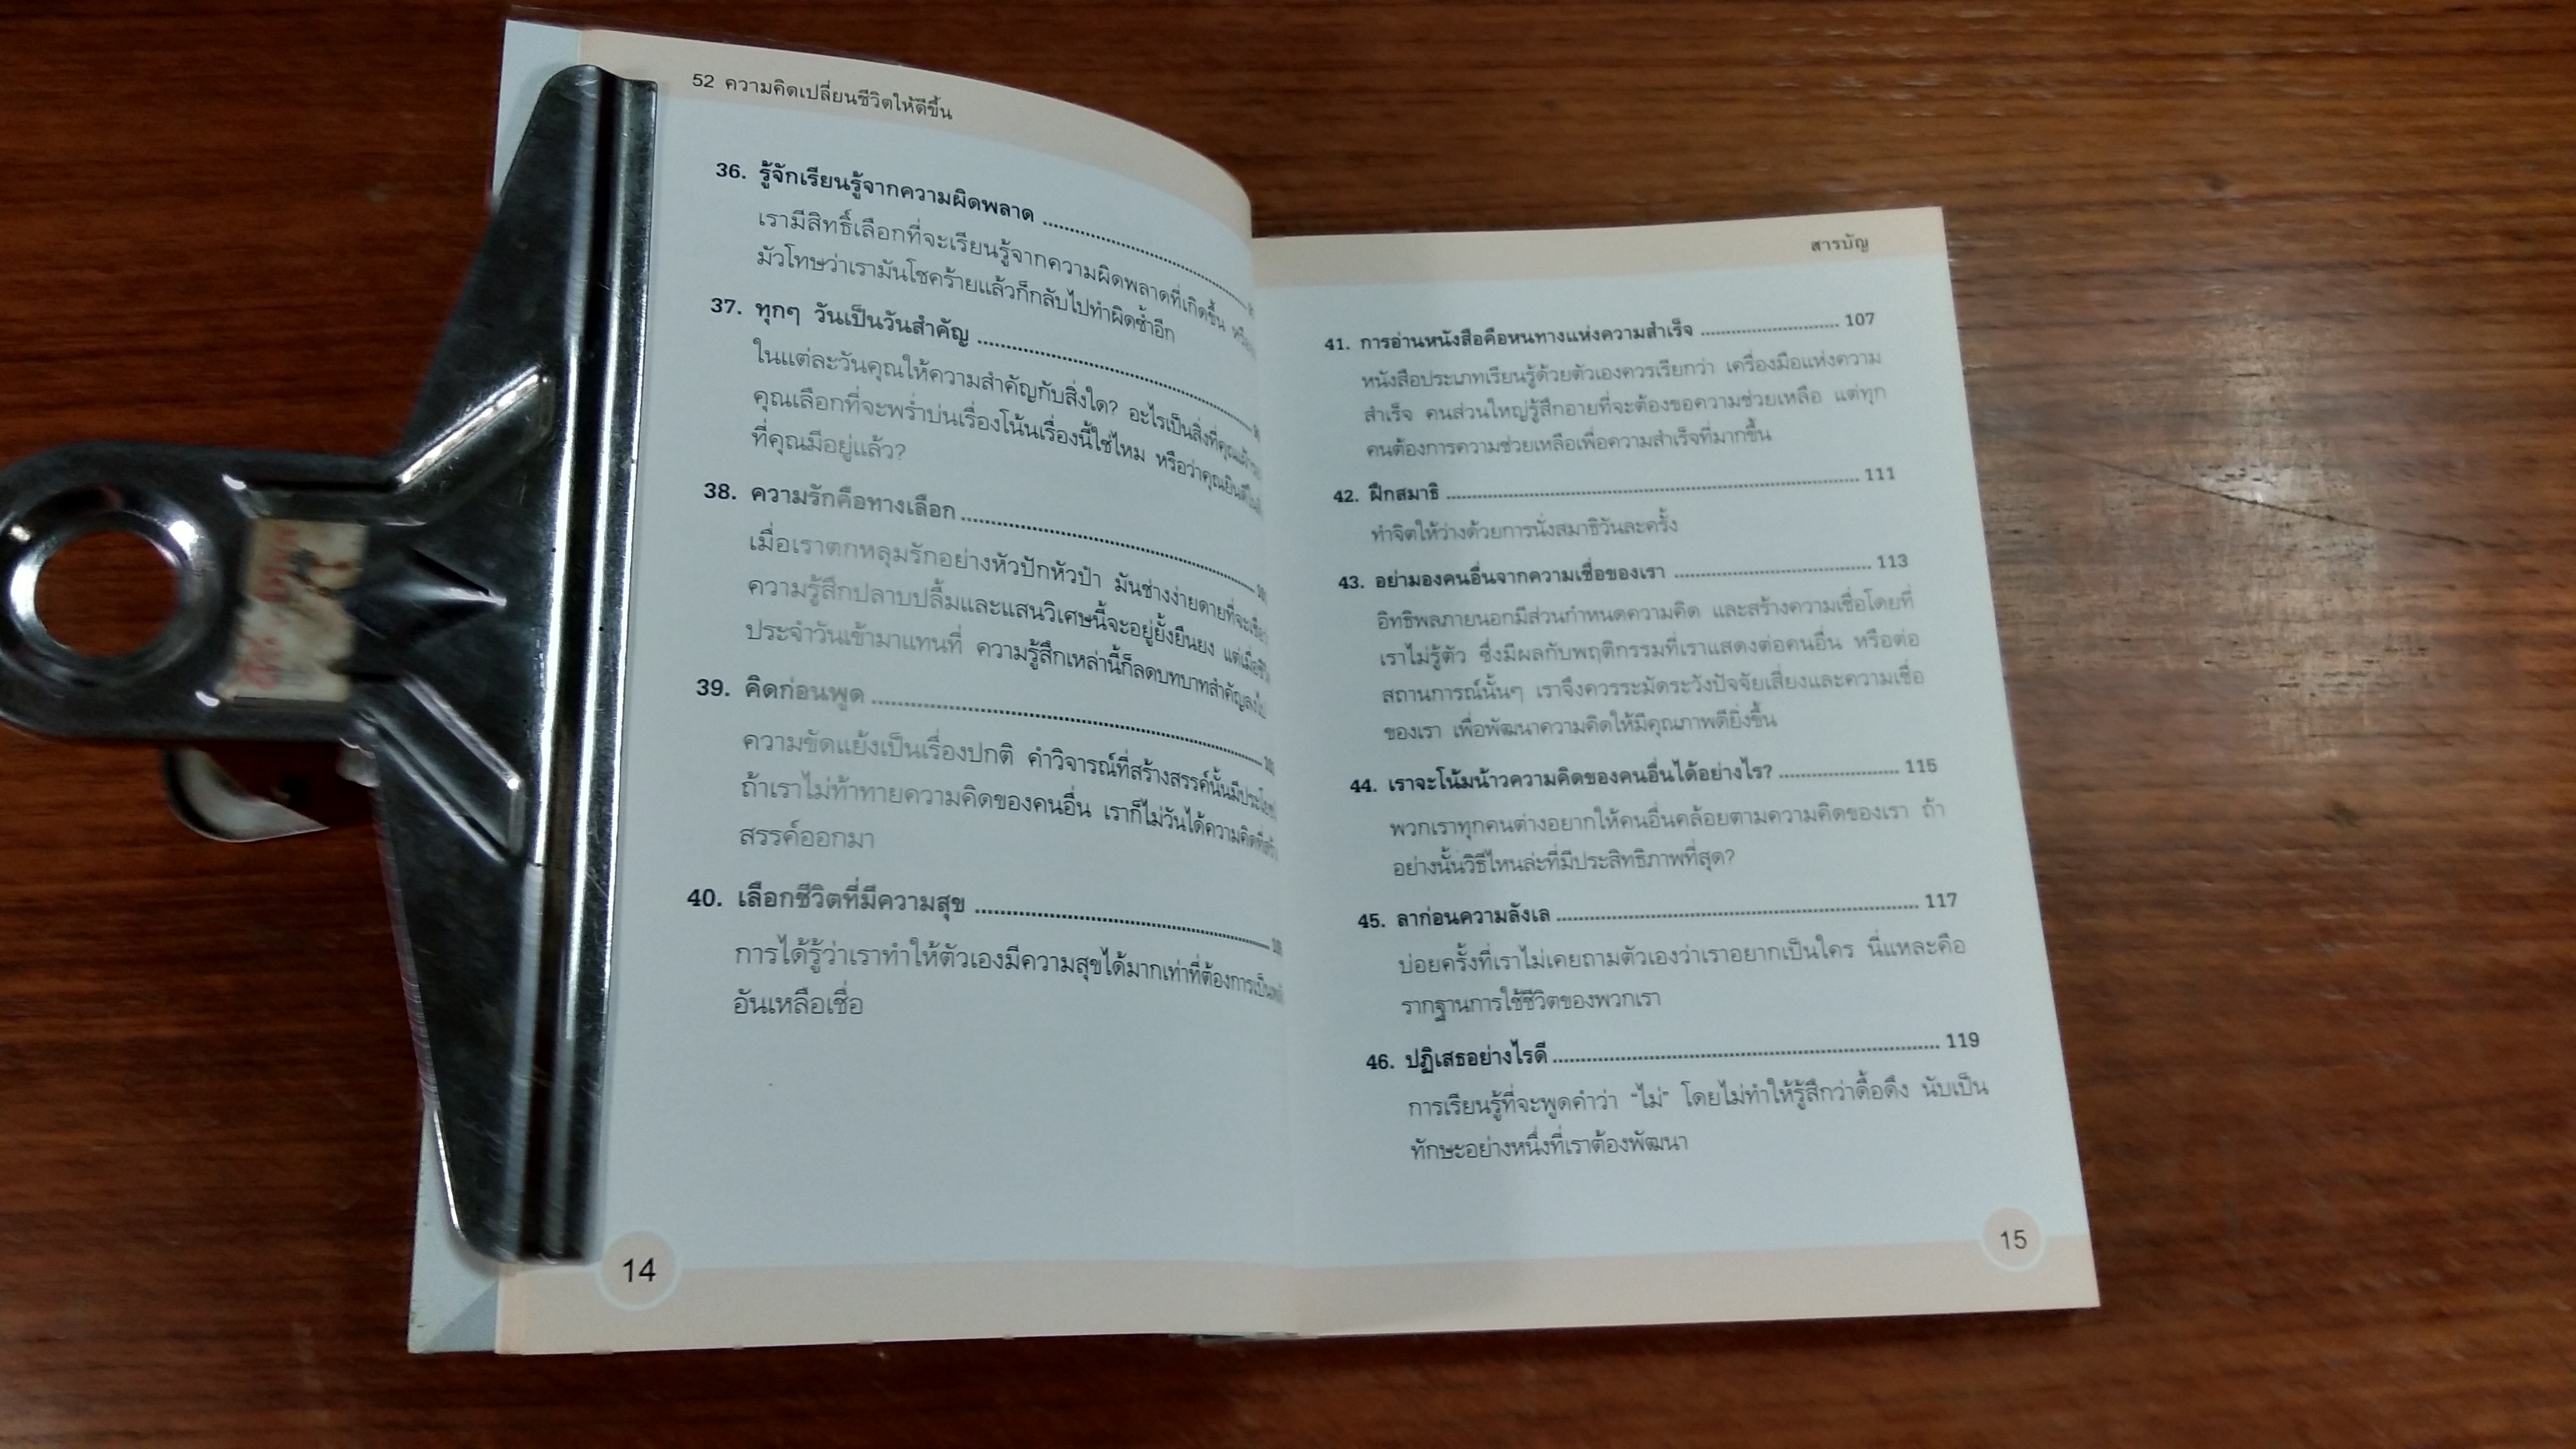 52 ความคิดเปลี่ยนชีวิตให้ดีขึ้น
36. รู้จักเรียนรู้จากความผิดพลาด
เรามีสิทธิ์เลือกที่จะเรียนรู้จากความผิดพลาดที่เกิดขึ้น
มัวโทษว่าเรามันโชคร้ายแล้วก็กลับไปทำผิดซ้ำอีก
37. ทุกๆ วันเป็นวันสำคัญ
ในแต่ละวันคุณให้ความสำคัญกับสิ่งใด? อะไรเป็นสิ่งที่
คุณเลือกที่จะพร่ำบ่นเรื่องโน้นเรื่องนี้ใช่ไหม หรือว่าคุณยินดี
ที่คุณมีอยู่แล้ว?
38. ความรักคือทางเลือก
เมื่อเราตกหลุมรักอย่างหัวปักหัวปำ มันช่างง่ายดายที่จะเชื่อ
ความรู้สึกปลาบปลื้มและแสนวิเศษนี้จะอยู่ยั้งยืนยง แต่เมื่อ
ประจำวันเข้ามาแทนที่ ความรู้สึกเหล่านี้ก็ลดบทบาทสำคัญลง
39. คิดก่อนพูด
ความขัดแย้งเป็นเรื่องปกติ คำวิจารณ์ที่สร้างสรรค์นั้นมีประโยชน์
ถ้าเราไม่ท้าทายความคิดของคนอื่น เราก็ไม่วันได้ความคิดที่
สรรค์ออกมา
40. เลือกชีวิตที่มีความสุข
การได้รู้ว่าเราทำให้ตัวเองมีความสุขได้มากเท่าที่ต้องการเป็น
อันเหลือเชื่อ
14
สารบัญ
41. การอ่านหนังสือคือหนทางแห่งความสำเร็จ ........................... 107
หนังสือประเภทเรียนรู้ด้วยตัวเองควรเรียกว่า เครื่องมือแห่งความ
สำเร็จ คนส่วนใหญ่รู้สึกอายที่จะต้องขอความช่วยเหลือ แต่ทุก
คนต้องการความช่วยเหลือเพื่อความสำเร็จที่มากขึ้น
42. ฝึกสมาธิ ........................... 111
ทำจิตให้ว่างด้วยการนั่งสมาธิวันละครั้ง
43. อย่ามองคนอื่นจากความเชื่อของเรา ........................... 113
อิทธิพลภายนอกมีส่วนกำหนดความคิด และสร้างความเชื่อโดยที่
เราไม่รู้ตัว ซึ่งมีผลกับพฤติกรรมที่เราแสดงต่อคนอื่น หรือต่อ
สถานการณ์นั้นๆ เราจึงควรระมัดระวังปัจจัยเสี่ยงและความเชื่อ
ของเรา เพื่อพัฒนาความคิดให้มีคุณภาพดียิ่งขึ้น
44. เราจะโน้มน้าวความคิดของคนอื่นได้อย่างไร? ........................... 115
พวกเราทุกคนต่างอยากให้คนอื่นคล้อยตามความคิดของเรา ถ้า
อย่างนั้นวิธีไหนล่ะที่มีประสิทธิภาพที่สุด?
45. ลาก่อนความลังเล ........................... 117
บ่อยครั้งที่เราไม่เคยถามตัวเองว่าเราอยากเป็นใคร นี่แหละคือ
รากฐานการใช้ชีวิตของพวกเรา
46. ปฏิเสธอย่างไรดี ........................... 119
การเรียนรู้ที่จะพูดคำว่า “ไม่” โดยไม่ทำให้รู้สึกว่าดื้อดึง นับเป็น
ทักษะอย่างหนึ่งที่เราต้องพัฒนา
15